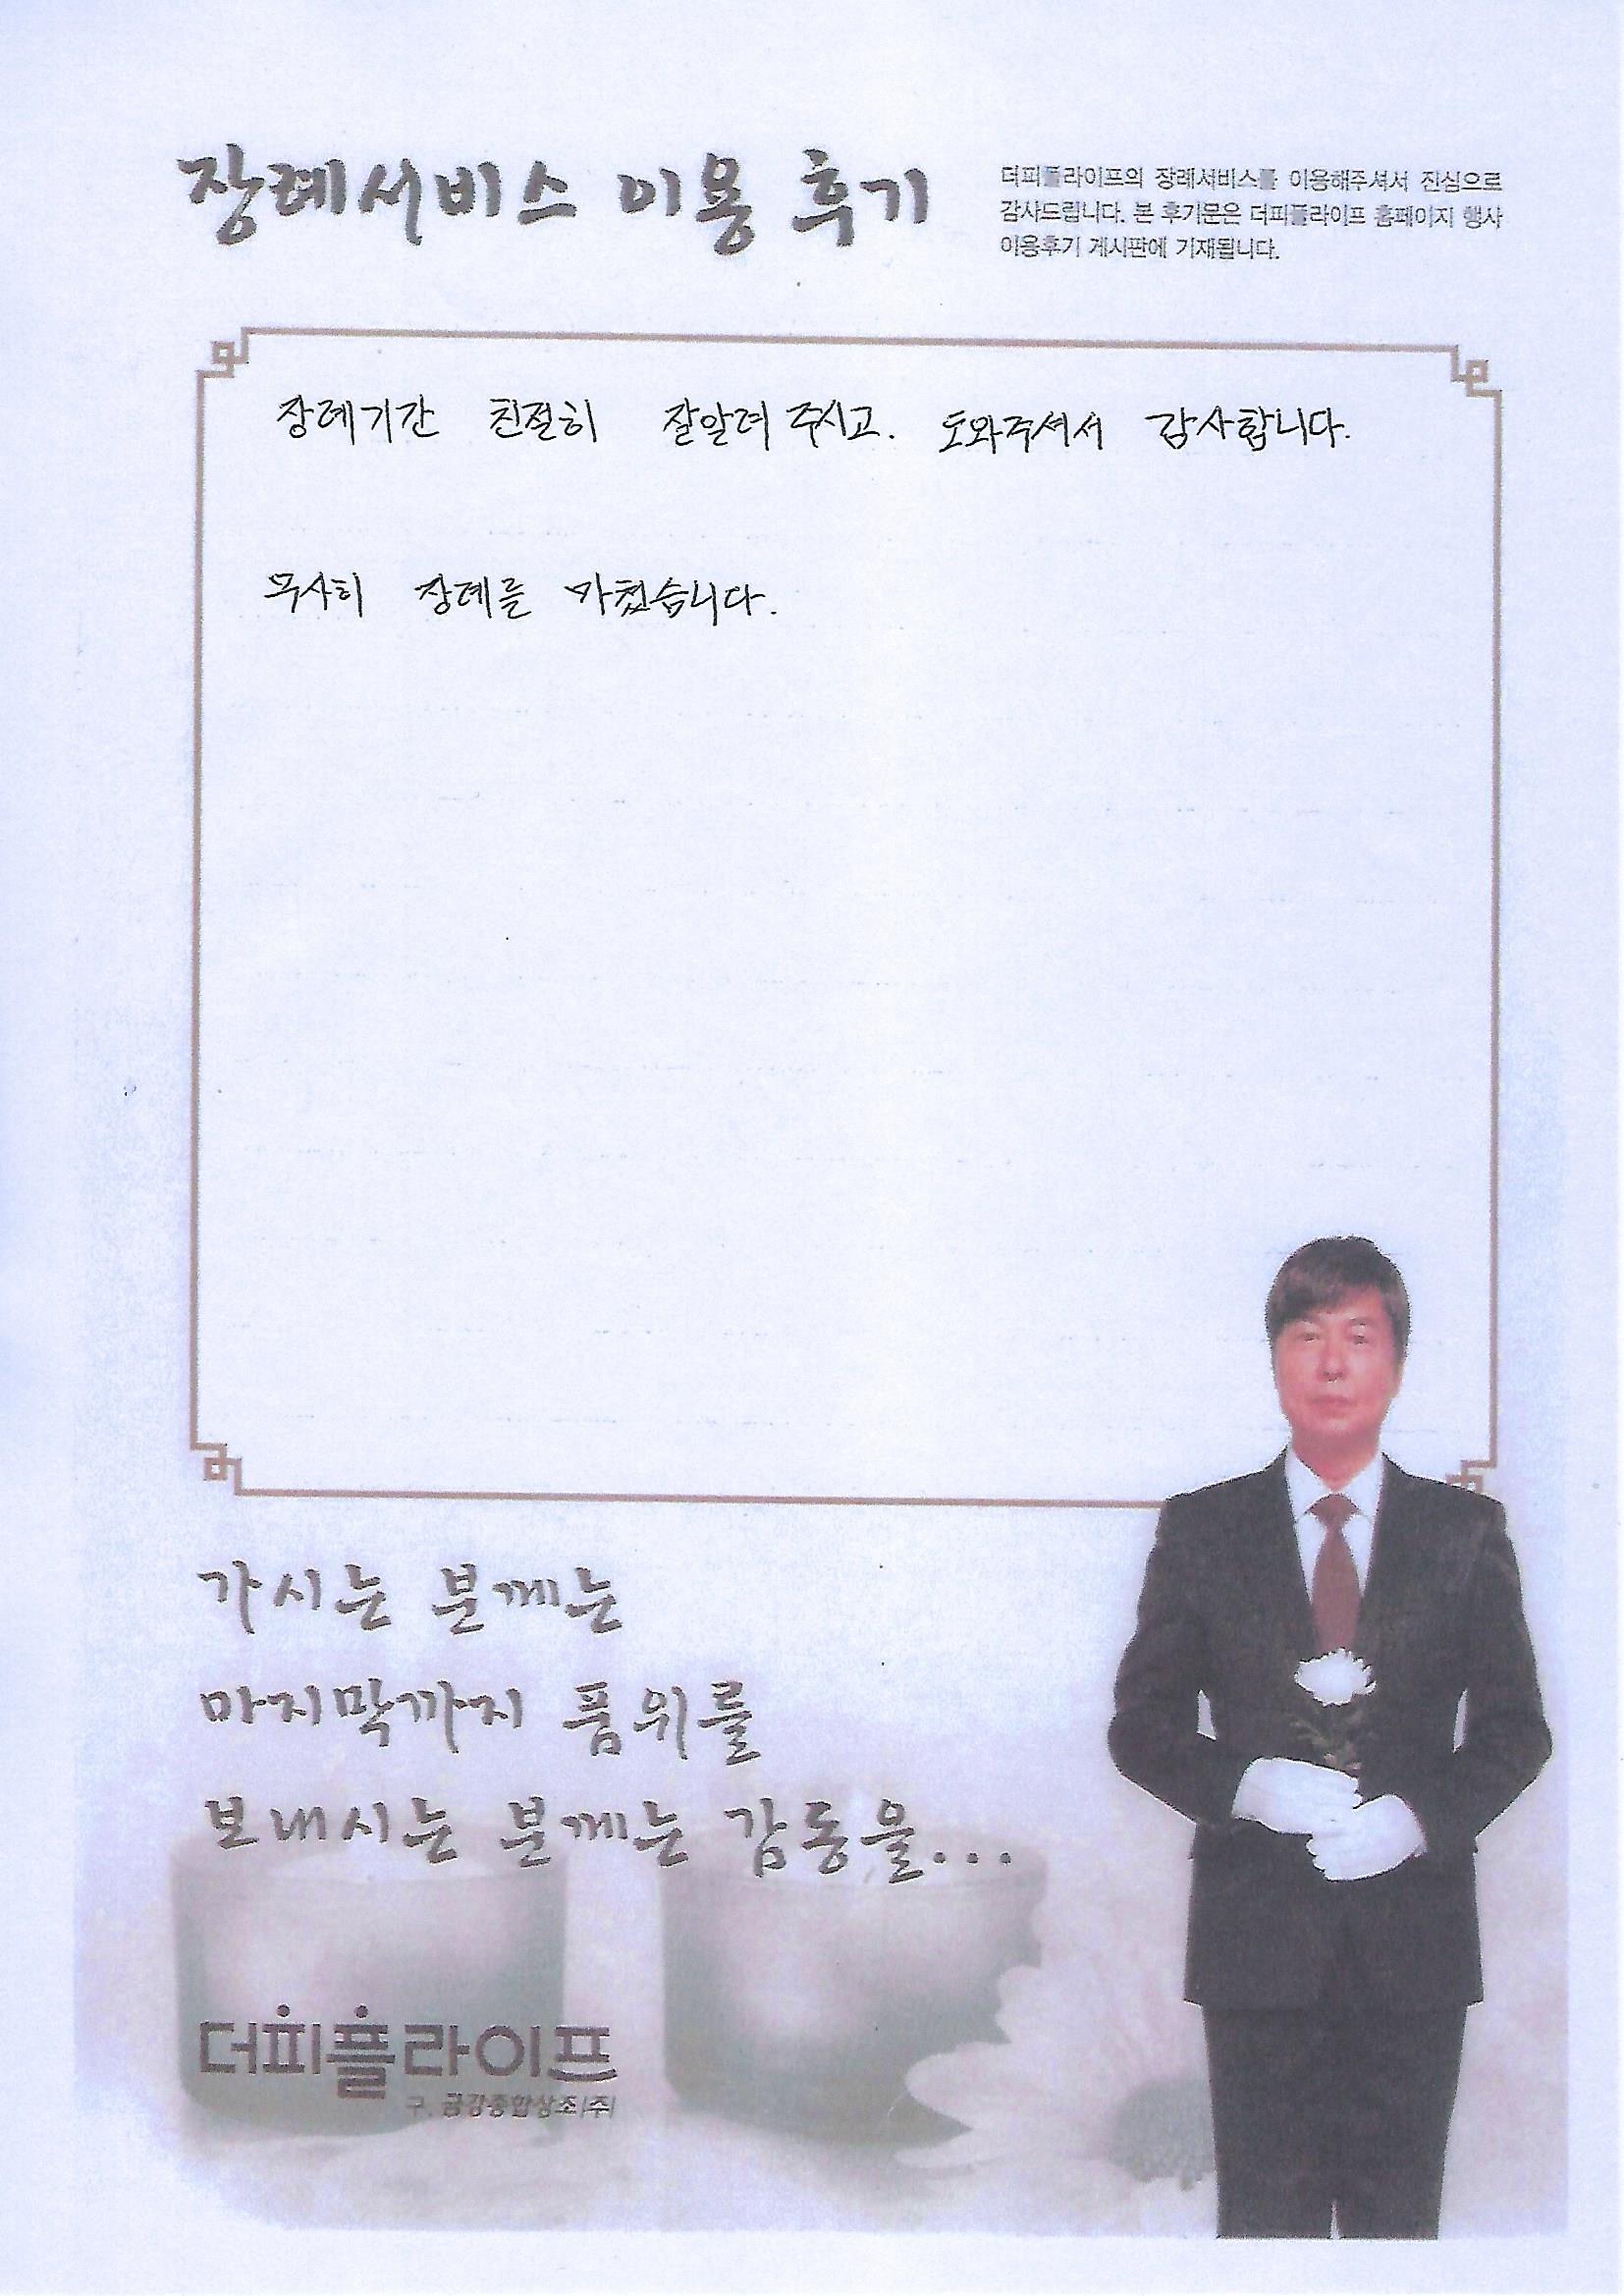 장례서비스 이용 후기
더피플라이프의 장례서비스를 이용해주셔서 진심으로
감사드립니다. 본 후기문은 더피플라이프 홈페이지 행사
이용후기 게시판에 기재됩니다.
장례기간 친절히 잘알려 주시고. 도와주셔서 감사합니다.
무사히 장례를 마쳤습니다.
가시는 분께는
마지막까지 품위를
보내시는 분께는 감동을...
더피플라이프
구. 금강종합상조(주)